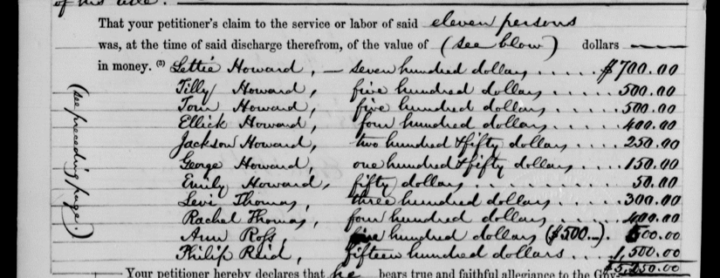 of his title.
That your petitioner's claim to the service or labor of said eleven persons
was, at the time of said discharge therefrom, of the value of (see blow) dollars
in money. (3) Lettie Howard, — seven hundred dollars .... $700.00
Tilly Howard, five hundred dollars .... 500.00
Tom Howard, five hundred dollars .... 500.00
Ellick Howard, four hundred dollars .... 400.00
Jackson Howard, two hundred & fifty dollars .... 250.00
George Howard, one hundred & fifty dollars .... 150.00
Emily Howard, fifty dollars .... 50.00
Levi Thomas, three hundred dollars .... 300.00
Rachel Thomas, four hundred dollars .... 400.00
Ann Ross, five hundred dollars ($500—) 500.00
Philip Reid, fifteen hundred dollars .... 1,500.00
Your petitioner hereby declares that he bears true and faithful allegiance to the
(see preceding page.)